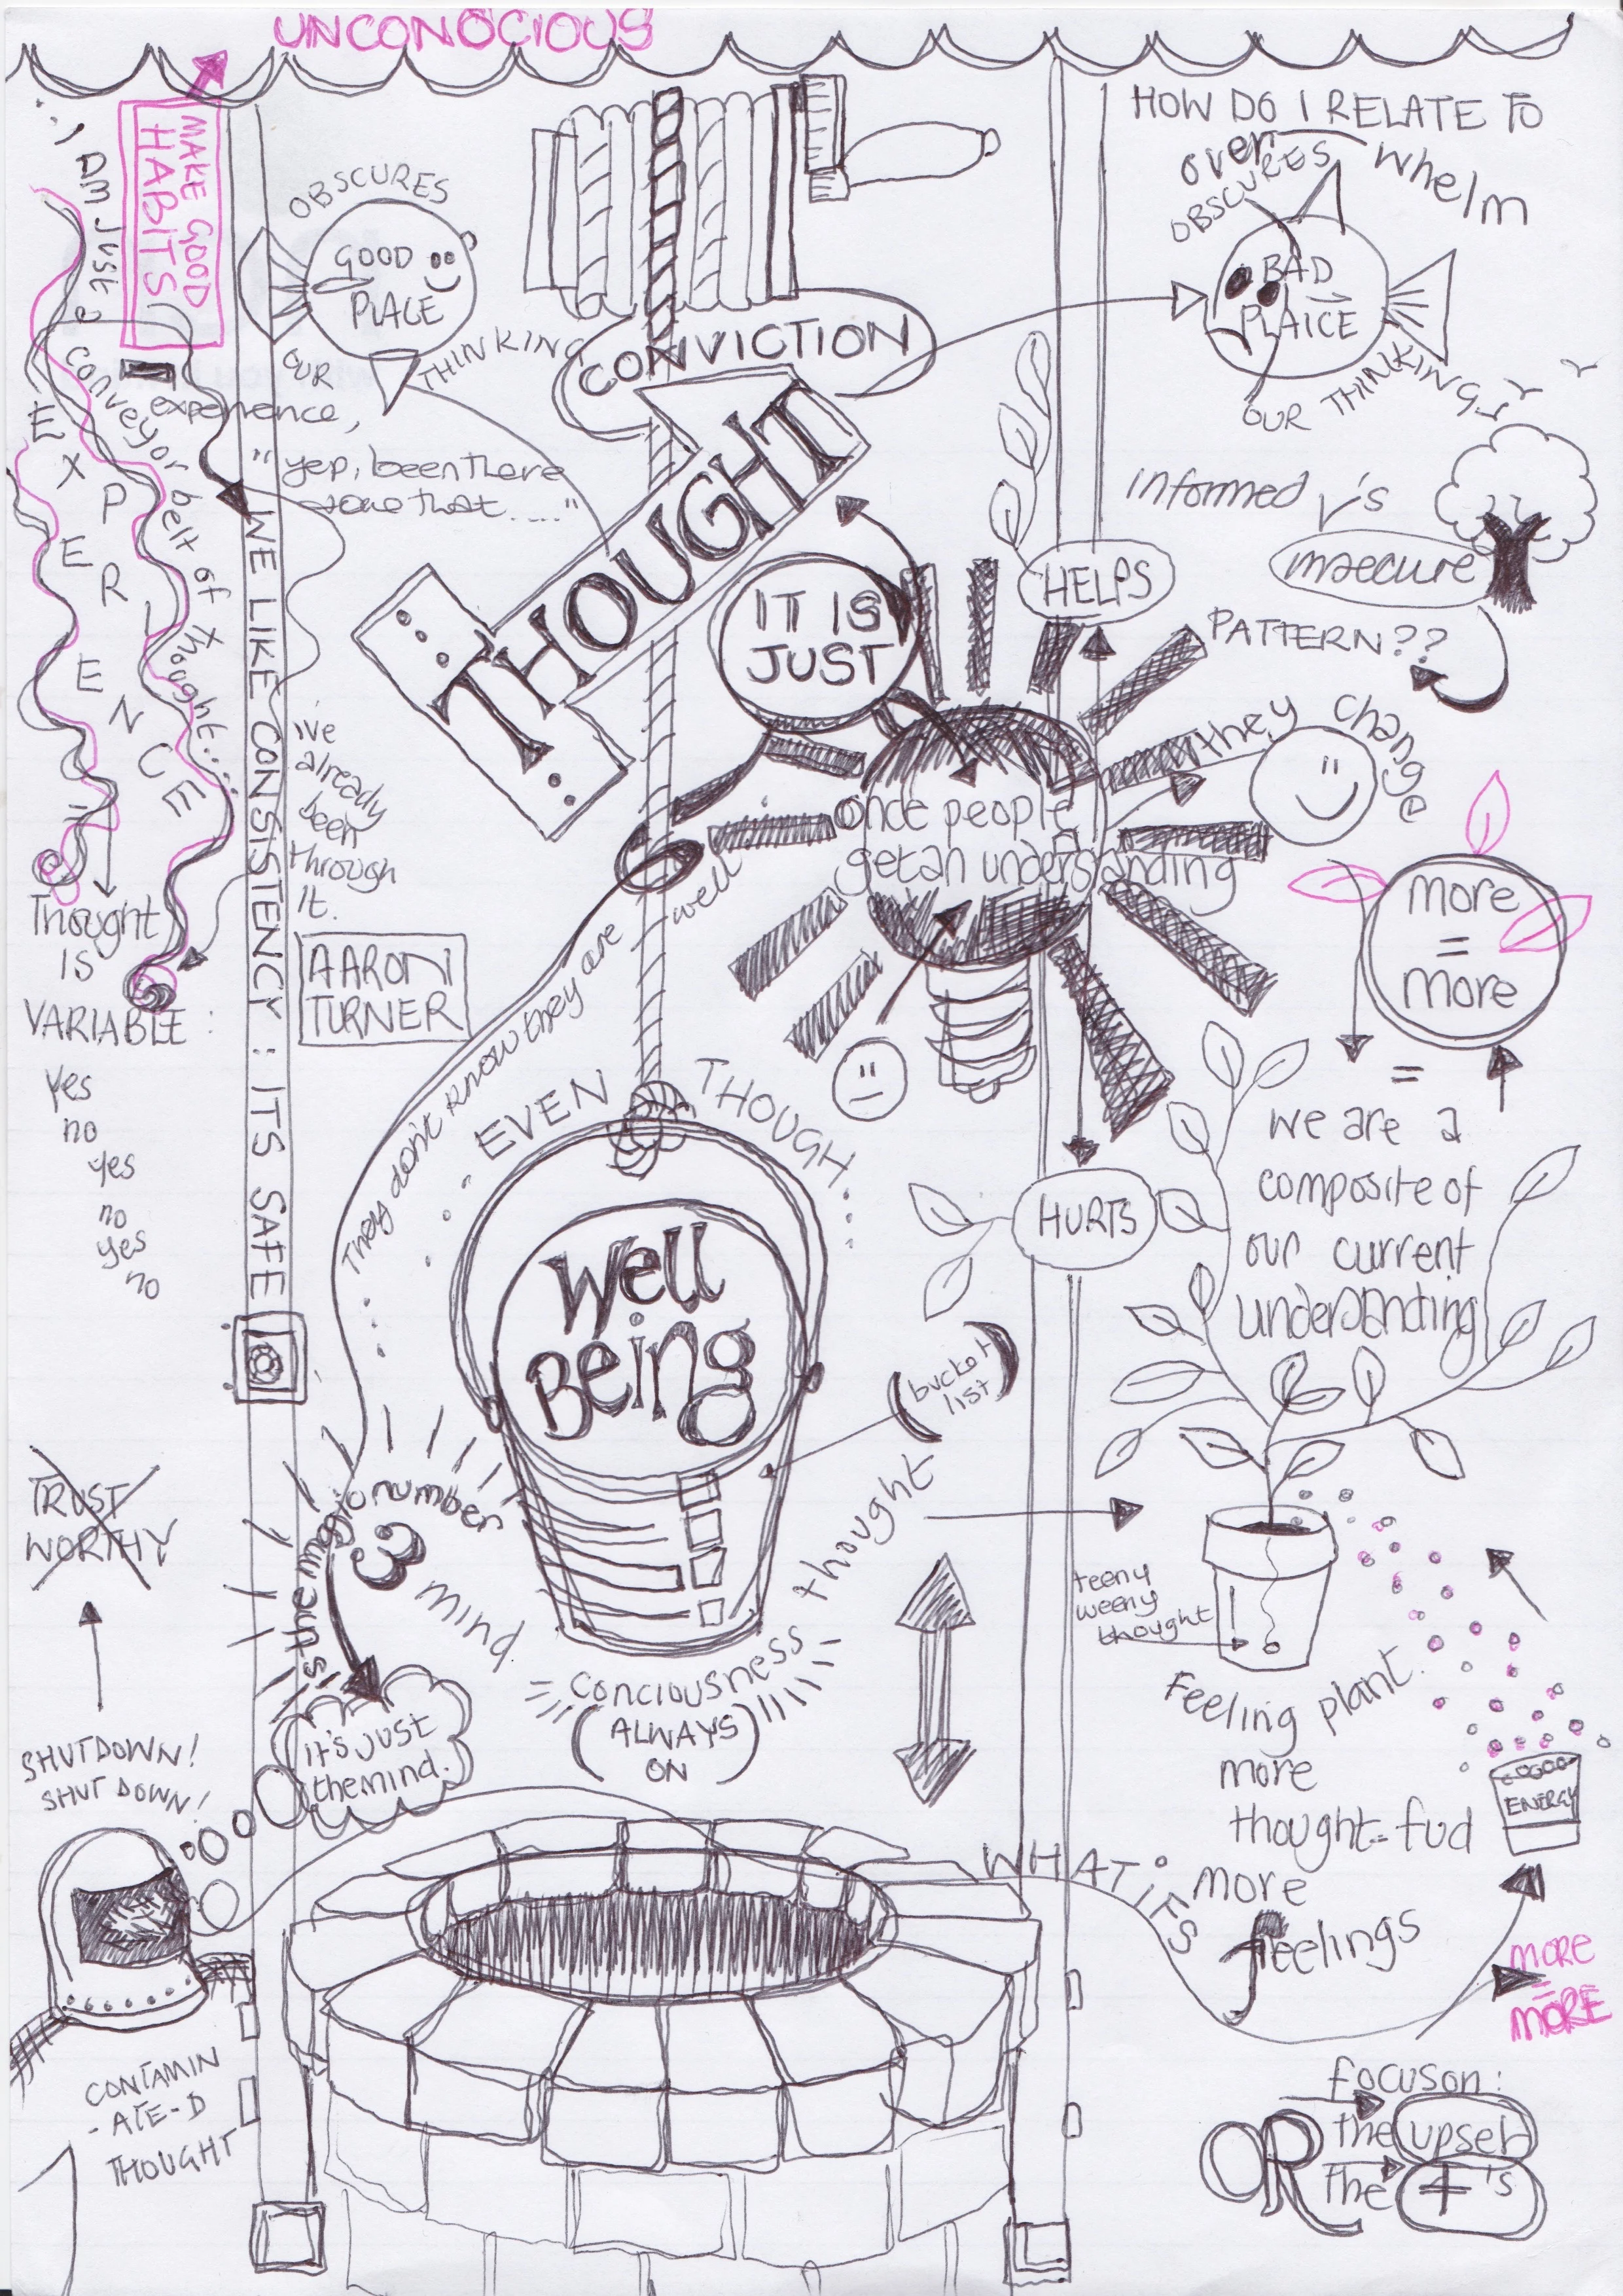 UNCONOCIOUS
MAKE GOOD
HABITS
... I am just a
conveyor belt of thought....
EXPERIENCE
OBSCURES
GOOD
PLACE
OUR THINKING
CONVICTION
HOW DO I RELATE TO
overwhelm
OBSCURES
BAD
PLAICE
OUR THINKING
experience,
"yep, been there
done that....."
THOUGHT
IT IS
JUST
HELPS
informed v's
insecure
PATTERN??
they change
WE LIKE CONSISTENCY: ITS SAFE
i've
already
been
through
it.
AARON
TURNER
once people
get an understanding
more
=
more
=
we are a
composite of
our current
understanding
Thought
IS
VARIABLE:
yes
no
yes
no
yes
no
They don't know they are well...
...EVEN THOUGH....
HURTS
Well
Being
(bucket
list)
TRUST
WORTHY
3 is the magic number
mind
thought
Conciousness
(ALWAYS
ON)
it's just
the mind.
teeny
weeny
thought
Feeling plant.
more
thought = fud
more
feelings
ENERGY
SHUTDOWN!
SHUT DOWN!
WHAT ifs
MORE
=
MORE
CONTAMIN
-ATE-D
THOUGHT
focus on:
the upset
OR
the +'s